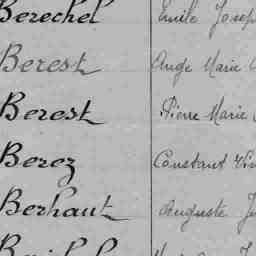 Berechel Emile Josep
Berest Ange Marie
Berest Pierre Marie
Berez Constant
Berhaut Auguste